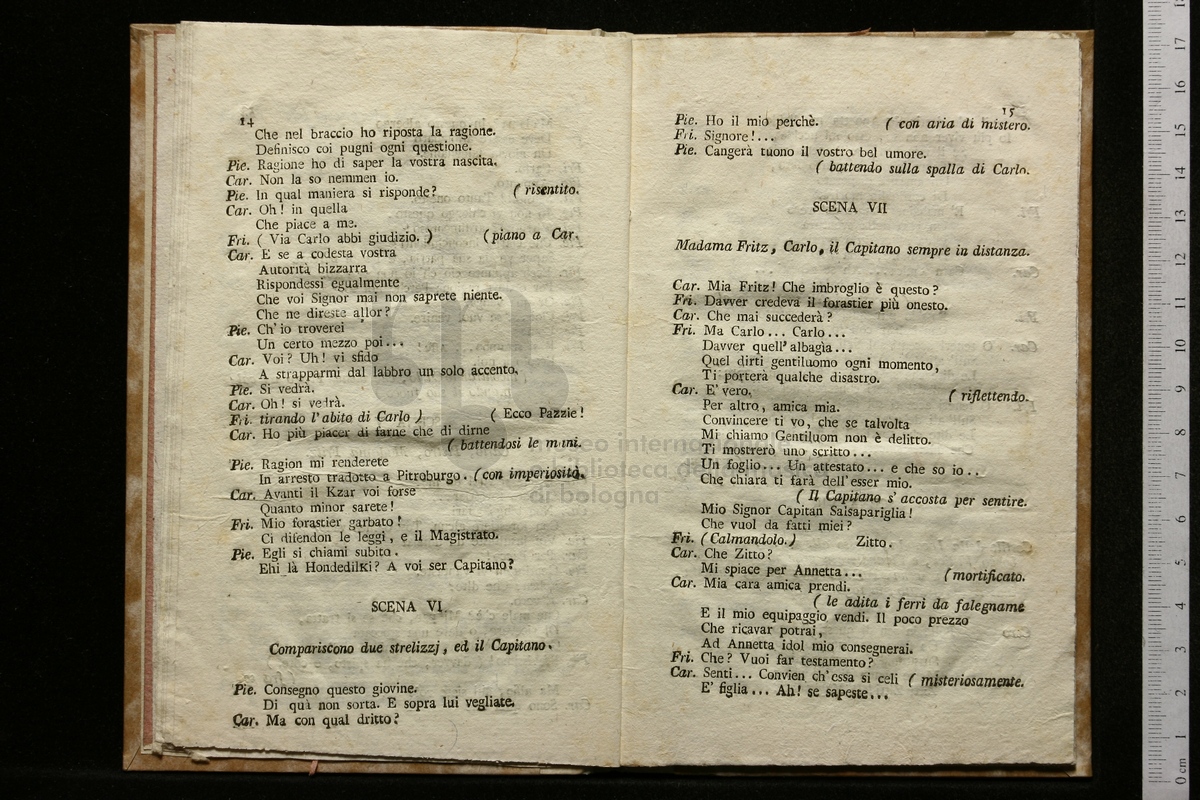 14
Che nel braccio ho riposta la ragione.
Definisco coi pugni ogni questione.
Pie. Ragione ho di saper la vostra nascita.
Car. Non la so nemmen io.
Pie. In qual maniera si risponde? ( risentito.
Car. Oh! in quella
Che piace a me.
Fri. ( Via Carlo abbi giudizio. ) (piano a Car.
Car. E se a codesta vostra
Autorità bizzarra
Rispondessi egualmente
Che voi Signor mai non saprete niente.
Che ne direste allor?
Pie. Ch' io troverei
Un certo mezzo poi...
Car. Voi? Uh! vi sfido
A strapparmi dal labbro un solo accento.
Pie. Si vedrà.
Car. Oh! si vedrà.
Fri. tirando l'abito di Carlo ) ( Ecco Pazzie!
Car. Ho più piacer di farne che di dirne
( battendosi le mani.
Pie. Ragion mi renderete
In arresto tradotto a Pitroburgo. (con imperiosità.
Car. Avanti il Kzar voi forse
Quanto minor sarete!
Fri. Mio forastier garbato!
Ci difendon le leggi, e il Magistrato.
Pie. Egli si chiami subito.
Ehi là Hondedilki? A voi ser Capitano?
SCENA VI
Compariscono due strelizzj, ed il Capitano.
Pie. Consegno questo giovine.
Di quì non sorta. E sopra lui vegliate.
Car. Ma con qual dritto?
15
Pie. Ho il mio perchè. ( con aria di mistero.
Fri. Signore!...
Pie. Cangerà tuono il vostro bel umore.
( battendo sulla spalla di Carlo.
SCENA VII
Madama Fritz, Carlo, il Capitano sempre in distanza.
Car. Mia Fritz! Che imbroglio è questo?
Fri. Davver credeva il forastier più onesto.
Car. Che mai succederà?
Fri. Ma Carlo... Carlo...
Davver quell' albagìa...
Quel dirti gentiluomo ogni momento,
Ti porterà qualche disastro.
Car. E' vero, ( riflettendo.
Per altro, amica mia.
Convincere ti vo, che se talvolta
Mi chiamo Gentiluom non è delitto.
Ti mostrerò uno scritto...
Un foglio... Un attestato... e che so io..
Che chiara ti farà dell' esser mio.
( Il Capitano s' accosta per sentire.
Mio Signor Capitan Salsapariglia!
Che vuol da fatti miei?
Fri. (Calmandolo.) Zitto.
Car. Che Zitto?
Mi spiace per Annetta... (mortificato.
Car. Mia cara amica prendi.
( le adita i ferri da falegname
E il mio equipaggio vendi. Il poco prezzo
Che ricavar potrai,
Ad Annetta idol mio consegnerai.
Fri. Che? Vuoi far testamento?
Car. Senti... Convien ch' essa si celi ( misteriosamente.
E' figlia... Ah! se sapeste...
museo internazionale
biblioteca della
di bologna
0 cm 1 2 3 4 5 6 7 8 9 10 11 12 13 14 15 16 17